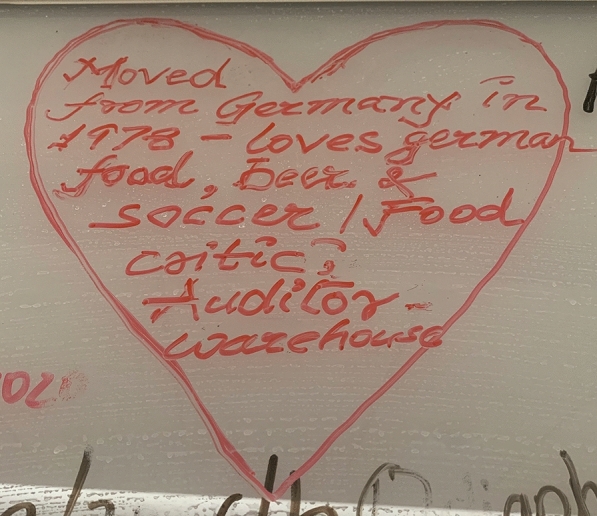 Moved
from Germany in
1978 - loves german
food, Beer &
soccer / Food
critic?
Auditor -
warehouse